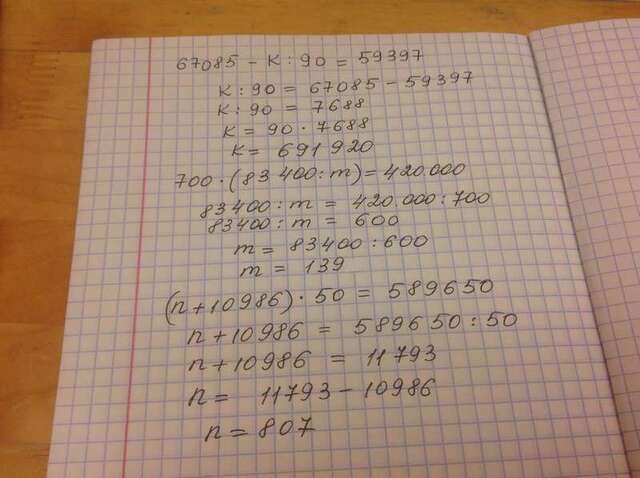 67085 - к : 90 = 59397
к : 90 = 67085 - 59397
к : 90 = 7688
к = 90 · 7688
к = 691 920
700 · (83 400 : m) = 420.000
83400 : m = 420.000 : 700
83400 : m = 600
m = 83400 : 600
m = 139
(n + 10986) · 50 = 589650
n + 10986 = 589650 : 50
n + 10986 = 11793
n = 11793 - 10986
n = 807